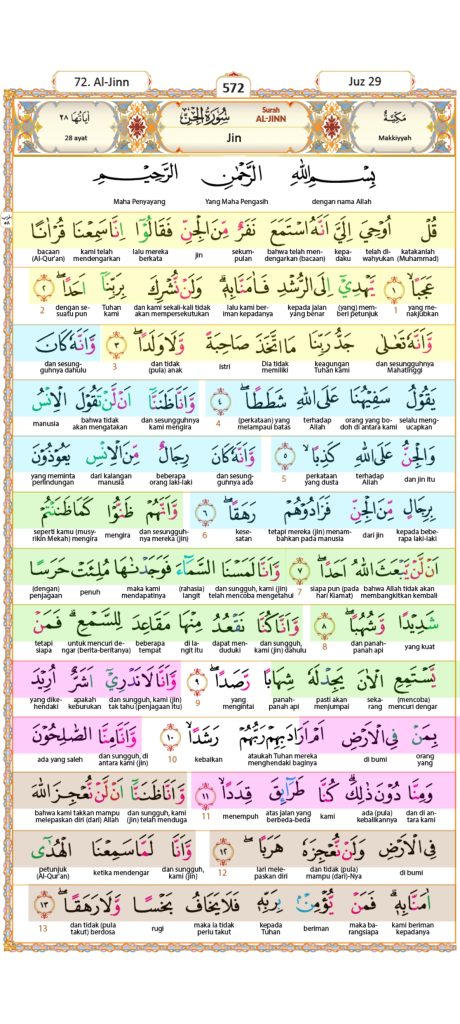 72. Al-Jinn
572
Juz 29
اٰيَاتُهَا ٢٨
28 ayat
سُوْرَةُ الْجِنّ
Surah
AL-JINN
Jin
مَكِّيَّة
Makkiyyah
بِسْمِ اللّٰهِ الرَّحْمٰنِ الرَّحِيْمِ
dengan nama Allah Yang Maha Pengasih Maha Penyayang
قُلْ اُوْحِيَ اِلَيَّ اَنَّهُ اسْتَمَعَ نَفَرٌ مِّنَ الْجِنِّ فَقَالُوْٓا اِنَّا سَمِعْنَا قُرْاٰنًا
katakanlah (Muhammad) telah di-wahyukan kepa-daku bahwa telah men-dengarkan (bacaan) sekum-pulan jin lalu mereka berkata kami telah mendengarkan bacaan (Al-Qur'an)
عَجَبًاۙ ١ يَّهْدِيْٓ اِلَى الرُّشْدِ فَاٰمَنَّا بِهٖۗ وَلَنْ نُّشْرِكَ بِرَبِّنَآ اَحَدًاۖ ٢
yang me-nakjubkan 1 (yang) mem-beri petunjuk kepada jalan yang benar lalu kami ber-iman kepadanya dan kami sekali-kali tidak akan mempersekutukan Tuhan kami dengan se-suatu pun 2
وَّاَنَّهٗ تَعٰلٰى جَدُّ رَبِّنَا مَا اتَّخَذَ صَاحِبَةً وَّلَا وَلَدًاۖ ٣ وَّاَنَّهٗ كَانَ
dan sesungguhnya Mahatinggi keagungan Tuhan kami Dia tidak memiliki istri dan tidak (pula) anak 3 dan sesung-guhnya dahulu
يَقُوْلُ سَفِيْهُنَا عَلَى اللّٰهِ شَطَطًاۖ ٤ وَّاَنَّا ظَنَنَّآ اَنْ لَّنْ تَقُوْلَ الْاِنْسُ
selalu meng-ucapkan orang yang bo-doh di antara kami terhadap Allah (perkataan) yang melampaui batas 4 dan sesungguhnya kami mengira bahwa tidak akan mengatakan manusia
وَالْجِنُّ عَلَى اللّٰهِ كَذِبًاۙ ٥ وَّاَنَّهٗ كَانَ رِجَالٌ مِّنَ الْاِنْسِ يَعُوْذُوْنَ
dan jin itu terhadap Allah perkataan yang dusta 5 dan sesung-guhnya ada beberapa orang laki-laki dari kalangan manusia yang meminta perlindungan
بِرِجَالٍ مِّنَ الْجِنِّ فَزَادُوْهُمْ رَهَقًاۖ ٦ وَّاَنَّهُمْ ظَنُّوْا كَمَا ظَنَنْتُمْ
kepada bebe-rapa laki-laki dari jin tetapi mereka (jin) menam-bahkan pada manusia kese-satan 6 dan sesungguh-nya mereka (jin) mengira seperti kamu (musy-rikin Mekah) mengira
اَنْ لَّنْ يَّبْعَثَ اللّٰهُ اَحَدًاۖ ٧ وَّاَنَّا لَمَسْنَا السَّمَاۤءَ فَوَجَدْنٰهَا مُلِئَتْ حَرَسًا
bahwa Allah Tidak akan membangkitkan kembali siapa pun (pada hari Kiamat) 7 dan sungguh, kami (jin) telah mencoba mengetahui (rahasia) langit maka kami mendapatinya penuh (dengan) penjagaan
شَدِيْدًا وَّشُهُبًاۖ ٨ وَّاَنَّا كُنَّا نَقْعُدُ مِنْهَا مَقَاعِدَ لِلسَّمْعِۗ فَمَنْ
yang kuat dan panah-panah api 8 dan sungguh, kami (jin) dahulu men-duduki di la-ngit itu beberapa tempat untuk mencuri de-ngar (berita-beritanya) tetapi siapa
يَّسْتَمِعِ الْاٰنَ يَجِدْ لَهٗ شِهَابًا رَّصَدًاۖ ٩ وَّاَنَّا لَا نَدْرِيْٓ اَشَرٌّ اُرِيْدَ
(mencoba) mencuri dengar seka-rang pasti akan menjumpai panah-panah api yang mengintai 9 dan sungguh, kami (jin) tak tahu (penjagaan itu) apakah keburukan yang dike-hendaki
بِمَنْ فِى الْاَرْضِ اَمْ اَرَادَ بِهِمْ رَبُّهُمْ رَشَدًاۙ ١٠ وَّاَنَّا مِنَّا الصّٰلِحُوْنَ
orang yang di bumi ataukah Tuhan mereka menghendaki baginya kebaikan 10 dan sungguh, di antara kami (jin) ada yang saleh
وَمِنَّا دُوْنَ ذٰلِكَۗ كُنَّا طَرَاۤىِٕقَ قِدَدًاۙ ١١ وَّاَنَّا ظَنَنَّآ اَنْ لَّنْ نُّعْجِزَ اللّٰهَ
dan di an-tara kami ada (pula) kebalikannya kami atas jalan yang berbeda-beda menempuh 11 dan sungguh, kami (jin) telah menduga bahwa kami takkan mampu melepaskan diri (dari) Allah
فِى الْاَرْضِ وَلَنْ نُّعْجِزَهٗ هَرَبًاۖ ١٢ وَّاَنَّا لَمَّا سَمِعْنَا الْهُدٰىٓ
di bumi dan tidak (pula) mampu (dari)-Nya lari mele-paskan diri 12 dan sungguh, kami (jin) ketika mendengar petunjuk (Al-Qur'an)
اٰمَنَّا بِهٖۗ فَمَنْ يُّؤْمِنْۢ بِرَبِّهٖ فَلَا يَخَافُ بَخْسًا وَّلَا رَهَقًاۖ ١٣
kami beriman kepadanya maka ba-rangsiapa beriman kepada Tuhan maka ia tidak perlu takut rugi dan tidak (pula takut) berdosa 13